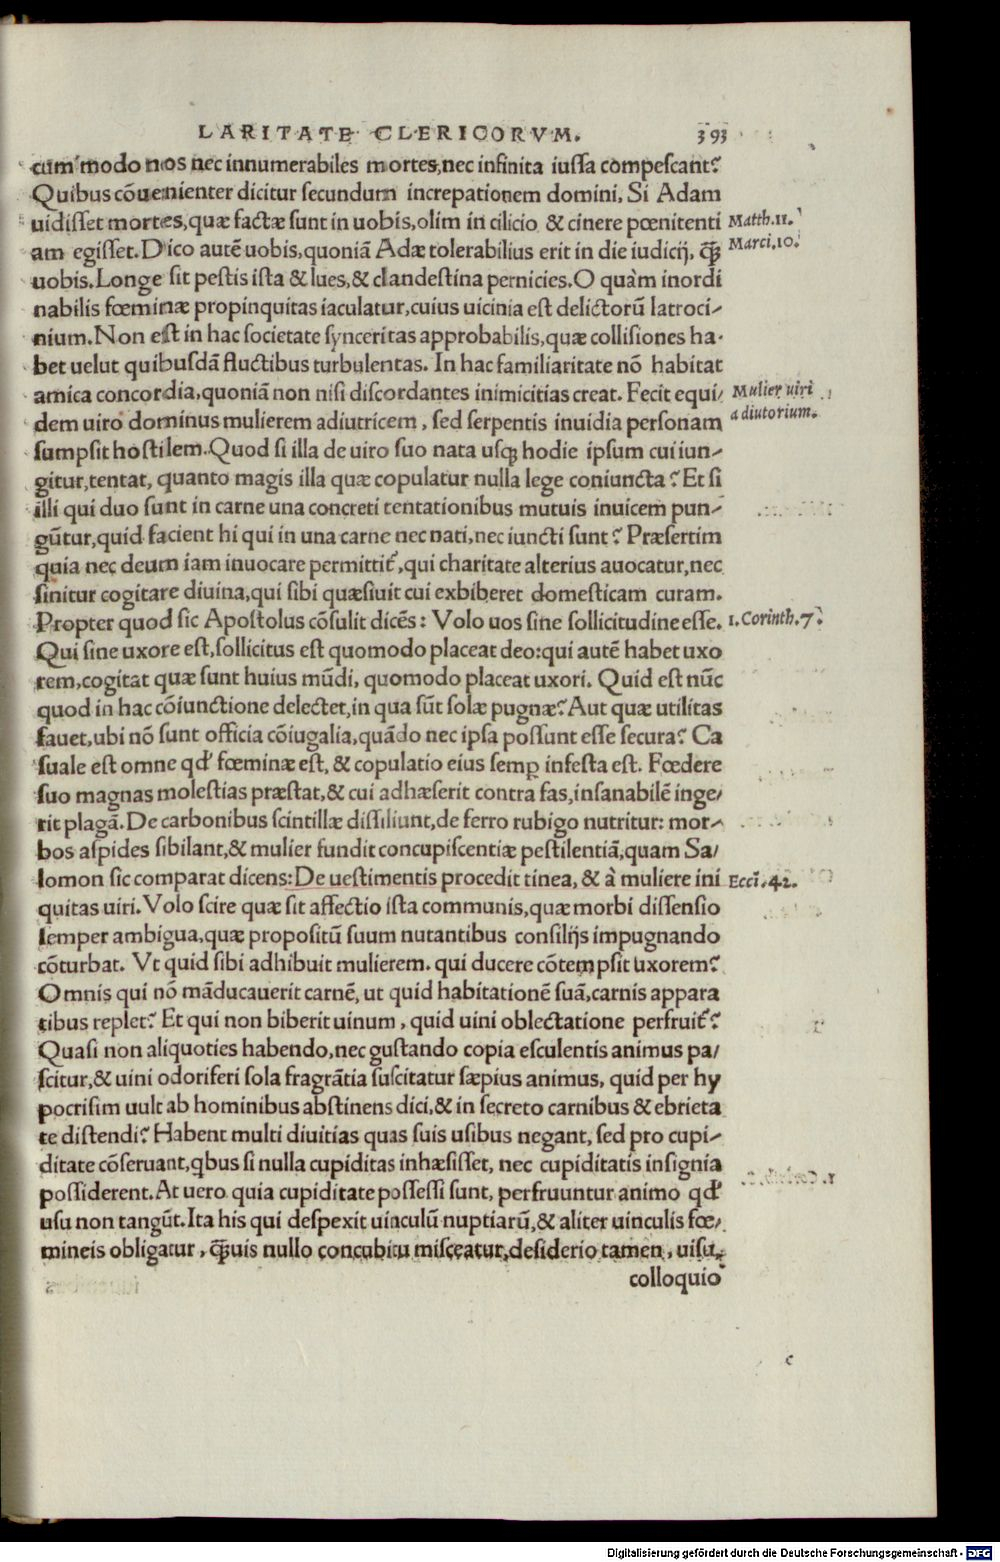 LARITATE CLERICORVM. 393
cum modo nos nec innumerabiles mortes, nec infinita iussa compescant?
Quibus cōuenienter dicitur secundum increpationem domini, Si Adam
uidisset mortes, quæ factæ sunt in uobis, olim in cilicio & cinere pœnitenti Matth.11.
am egisset. Dico autē uobis, quoniā Adæ tolerabilius erit in die iudicij, ꝗ̃ Marci.10.
uobis. Longe sit pestis ista & lues, & clandestina pernicies. O quàm inordi
nabilis fœminæ propinquitas iaculatur, cuius uicinia est delictorū latroci-
nium. Non est in hac societate synceritas approbabilis, quæ collisiones ha-
bet uelut quibusdā fluctibus turbulentas. In hac familiaritate nō habitat
amica concordia, quoniā non nisi discordantes inimicitias creat. Fecit equi/ Mulier uiri
dem uiro dominus mulierem adiutricem, sed serpentis inuidia personam adiutorium.
sumpsit hostilem. Quod si illa de uiro suo nata usq; hodie ipsum cui iun-
gitur, tentat, quanto magis illa quæ copulatur nulla lege coniuncta? Et si
illi qui duo sunt in carne una concreti tentationibus mutuis inuicem pun-
gūtur, quid facient hi qui in una carne nec nati, nec iuncti sunt? Præsertim
quia nec deum iam inuocare permittit᷑, qui charitate alterius auocatur, nec
sinitur cogitare diuina, qui sibi quæsiuit cui exbiberet domesticam curam.
Propter quod sic Apostolus cōsulit dicēs: Volo uos sine sollicitudine esse. 1. Corinth. 7.
Qui sine uxore est, sollicitus est quomodo placeat deo: qui autē habet uxo
rem, cogitat quæ sunt huius mūdi, quomodo placeat uxori. Quid est nūc
quod in hac cōiunctione delectet, in qua sūt solæ pugnæ? Aut quæ utilitas
fauet, ubi nō sunt officia cōiugalia, quādo nec ipsa possunt esse secura? Ca
suale est omne qd' fœminæ est, & copulatio eius semꝑ infesta est. Fœdere
suo magnas molestias præstat, & cui adhæserit contra fas, insanabilē inge/
rit plagā. De carbonibus scintillæ dissiliunt, de ferro rubigo nutritur: mor-
bos aspides sibilant, & mulier fundit concupiscentiæ pestilentiā, quam Sa/
lomon sic comparat dicens: De uestimentis procedit tinea, & à muliere ini Eccī. 42.
quitas uiri. Volo scire quæ sit affectio ista communis, quæ morbi dissensio
semper ambigua, quæ propositū suum nutantibus consilijs impugnando
cōturbat. Vt quid sibi adhibuit mulierem. qui ducere cōtempsit uxorem?
Omnis qui nō māducauerit carnē, ut quid habitationē suā, carnis appara
tibus replet? Et qui non biberit uinum, quid uini oblectatione perfruit᷑?
Quasi non aliquoties habendo, nec gustando copia esculentis animus pa/
scitur, & uini odoriferi sola fragrātia suscitatur sæpius animus, quid per hy
pocrisim uult ab hominibus abstinens dici, & in secreto carnibus & ebrieta
te distendi? Habent multi diuitias quas suis usibus negant, sed pro cupi-
ditate cōseruant, qbus si nulla cupiditas inhæsisset, nec cupiditatis insignia
possiderent. At uero quia cupiditate possessi sunt, perfruuntur animo qd'
usu non tangūt. Ita his qui despexit uinculū nuptiarū, & aliter uinculis fœ/
mineis obligatur, ꝗ̃uis nullo concubitu misceatur, desiderio tamen, uisu,
colloquio
c
Digitalisierung gefördert durch die Deutsche Forschungsgemeinschaft - DFG